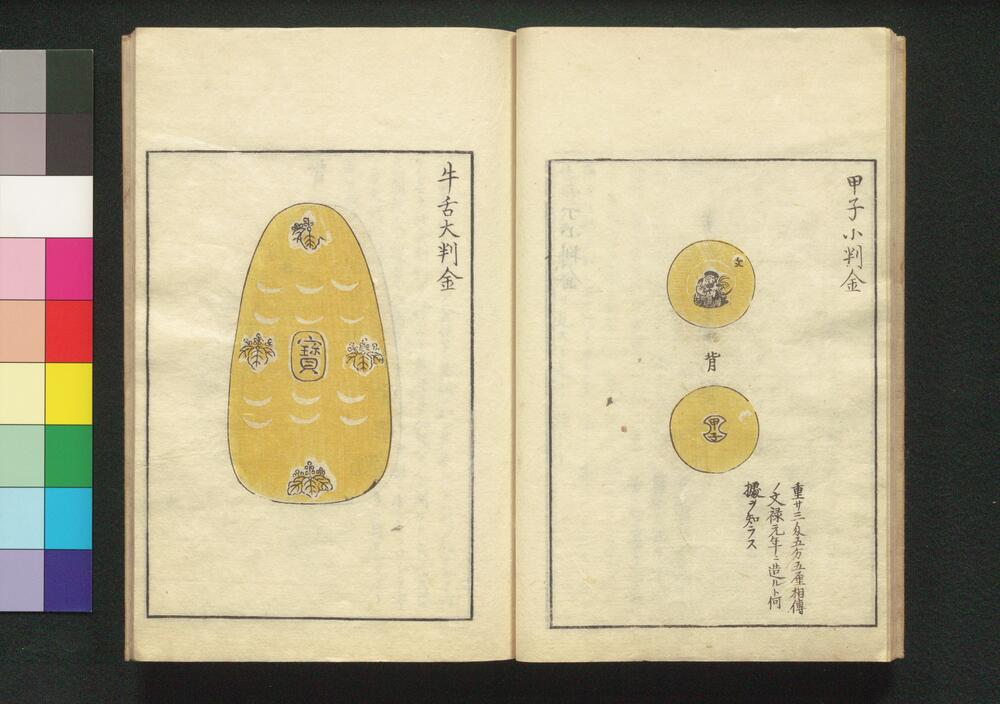 甲子小判金
文
背
甲子
重廿三匁五分五厘相傳
フ文禄元年ニ造ルト何
據ヲ知ラス
牛舌大判金
寶